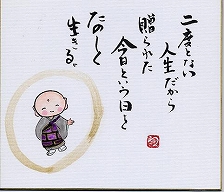 二度とない
人生だから
贈られた
今日という日を
たのしく
生きる。